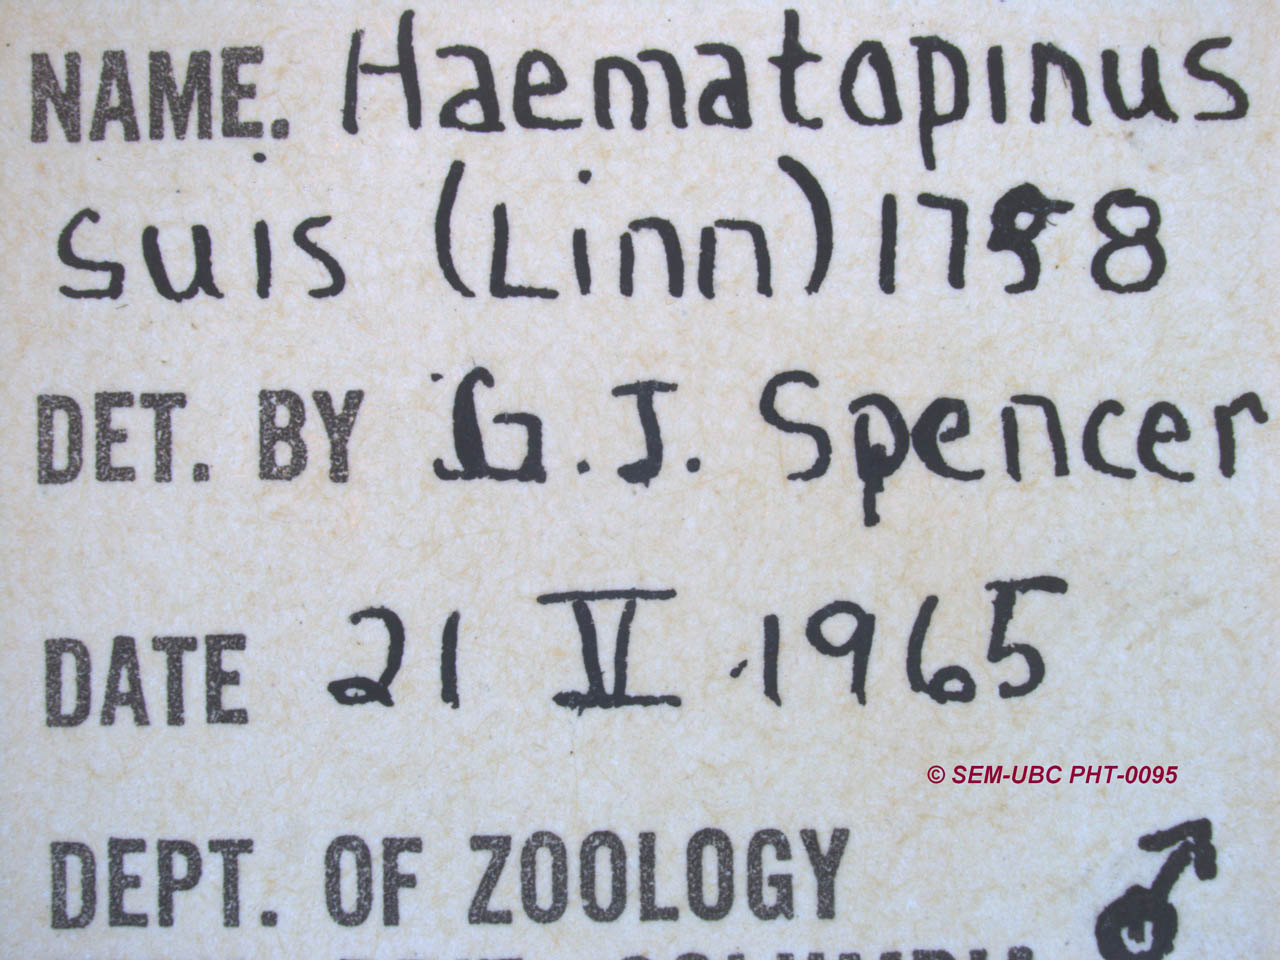 NAME. Haematopinus
suis (Linn) 1758
DET. BY G. J. Spencer
DATE 21 V 1965
© SEM-UBC PHT-0095
DEPT. OF ZOOLOGY ♂